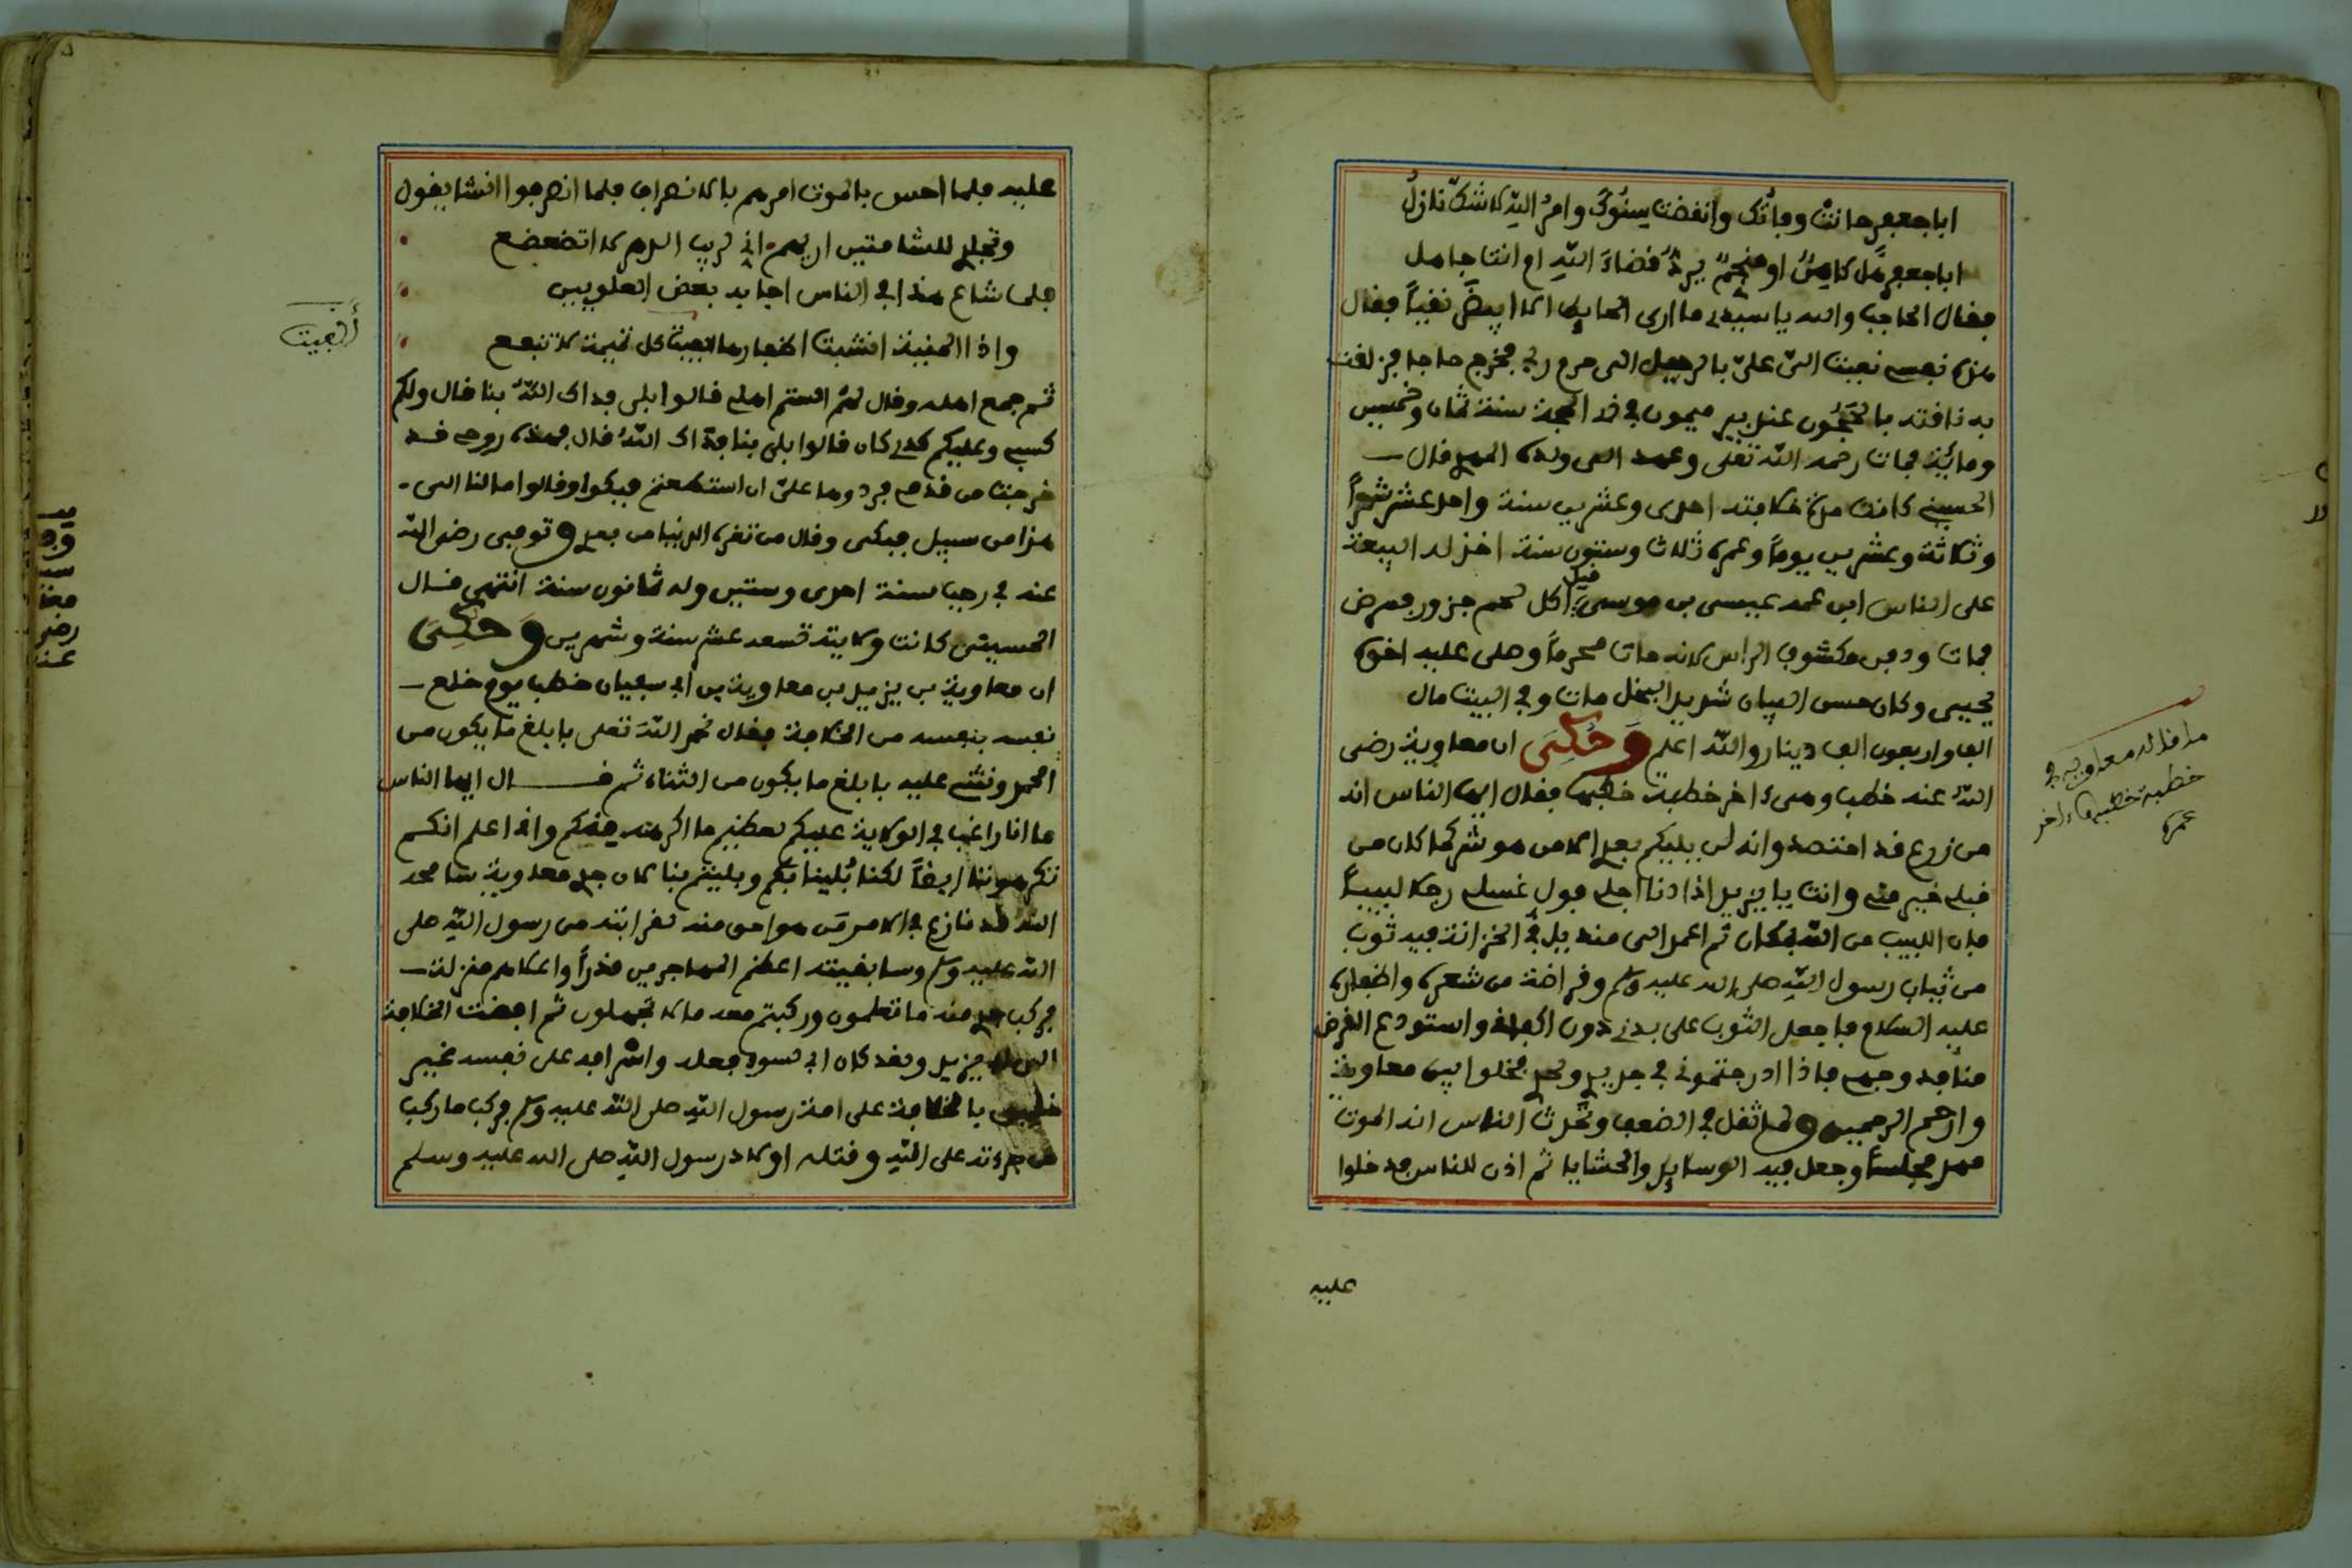 ابا جعفر حانت وفاتك وانقضت سنوك وامر الله لا شك نازل
ابا جعفر هل كاهن او منجم يرد قضاء الله ام انت جاهل
فقال الحاجب والله يا سيدي ما ارى الحايط الا ابيض نقيا فقال
هذه نفسي نعيت الي علي بالرحيل الى حرم ربي فخرج حاجا فزلقت
به ناقته بالحجون عند بير ميمون في ذي الحجة سنة ثمان وخمسين
وماية فمات رحمه الله تعلى وعهد الى ولده المهدي قال
الحسيني كانت مدة خلافته احدى وعشرين سنة واحد عشر شهرا
وثلاثة وعشرين يوما وعمره ثلاث وستون سنة اخذ له البيعة
على الناس ابن عمه عيسى بن موسى قيل اكل لحم جزور فمرض
فمات ودفن مكشوف الراس لانه مات محرما وصلى عليه اخوه
يحيى وكان حسن البيان شديد البخل مات وفي البيت مال
الف واربعون الف دينار والله اعلم وحكي ان معاوية رضي
الله عنه خطب وهي ءاخر خطبة خطبها فقال ايها الناس انه
من زرع قد احتصد وانه لن يليكم بعدي الا من هو شر كما كان من
قبلي خير مني وانت يا يزيد اذا دنا اجلي فول غسلي رجلا لبيبا
فان اللبيب من الله بمكان ثم اعمد الى منديل في الخزانة فيه ثوب
من ثياب رسول الله صلى الله عليه وسلم وقراضة من شعره واظفاره
عليه السلام فاجعل الثوب على بدني دون اكفاني واستودع القرض
منافذ وجهي فاذا ادرجتموني في جريدي ولحدي فخلوا بين معاوية
وارحم الرحمين ولما ثقل في الضعف وتحدث الناس انه الموت
مهد مجلسا وجعل فيه الوسايد والحشايا ثم اذن للناس فدخلوا
عليه
ما قاله معاوية في
خطبة خطبها ءاخر
عمره
عليه فلما احس بالموت امرهم بالانصراف فلما انصرفوا انشا يقول
وتجلدي للشامتين اريهم اني لريب الدهر لا اتضعضع
فلما شاع هذا في الناس اجابه بعض العلويين
واذا المنية انشبت اظفارها الفيت كل تميمة لا تنفع
ثم جمع اهله وقال لهم الستم اهلي قالوا بلى فداك الله بنا قال ولكم
كسبي وعليكم كدي كان قالوا بلى بنا فداك الله قال فهذه روحي قد
خرجت من قدمي فردوها علي ان استطعتم فبكوا وقالوا ما لنا الى
هذا من سبيل فبكى وقال من تغره الدنيا من بعدي وتوفي رضي الله
عنه في رجب سنة احدى وستين وله ثمانون سنة انتهى قال
الحسيني كانت ولايته تسعة عشر سنة وشهرين وحكي
ان معاوية بن يزيد بن معاوية بن ابي سفيان خطب يوم خلع
نفسه بنفسه من الخلافة فقال نحمد الله تعلى بابلغ ما يكون من
الحمد ونثني عليه بابلغ ما يكون من الثناء ثم قال ايها الناس
ما انا راغب في الولاية عليكم لعظيم ما اكرهه منكم واني اعلم انكم
تكرهوننا ايضا لكنا بلينا بكم وبليتم بنا لان جدي معاوية سامحه
الله قد نازع في الامر من هو احق منه لقرابته من رسول الله صلى
الله عليه وسلم وسابقيته اعظم المهاجرين قدرا واعلاهم منزلة
فركب جدي منه ما تعلمون وركبتم معه ما لا تجهلون ثم افضت الخلافة
الى يزيد ولقد كان ابي لسوء فعله واسرافه على نفسه غير
خليق بالخلافة على امة رسول الله صلى الله عليه وسلم فركب ما ركب
من جرءته على الله وقتله اولاد رسول الله صلى الله عليه وسلم
ألفيت